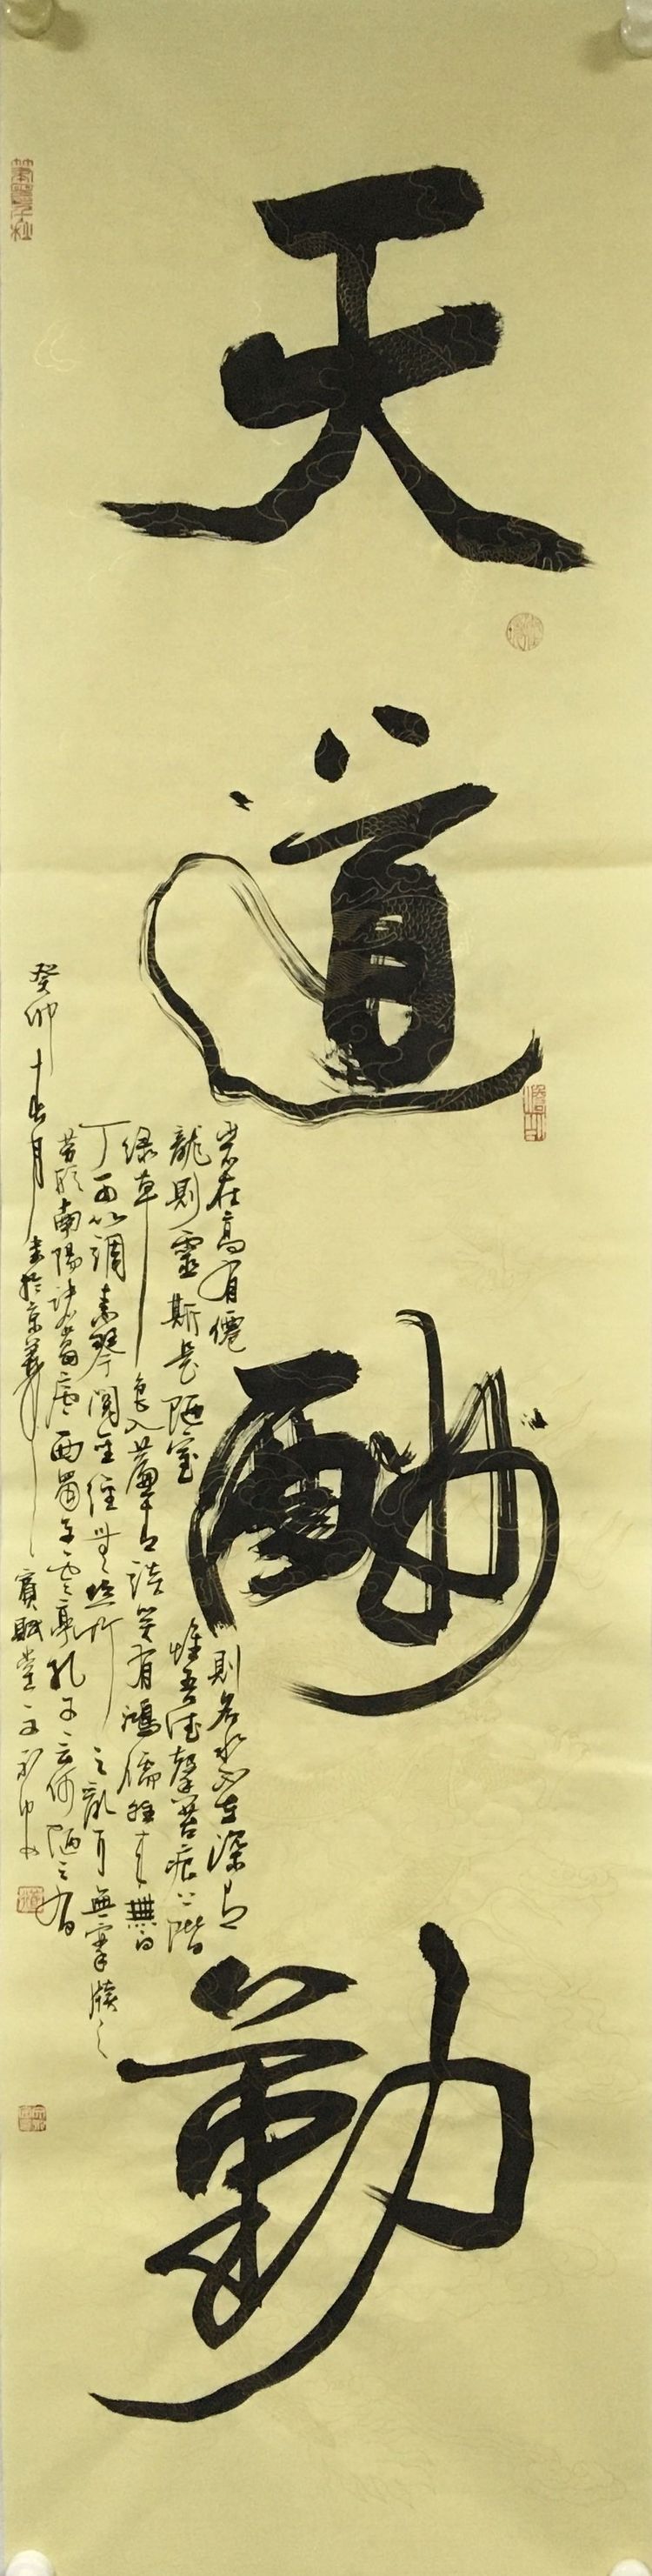 天道酬勤
山不在高有僊則名水不在深有
龍則靈斯是陋室惟吾德馨苔痕上階
绿草色入簾青談笑有鴻儒往来無白
丁可以調素琴閲金經無絲竹之亂耳無案牘之
勞形南陽諸葛廬西蜀子雲亭孔子云何陋之有
癸卯十月書於京華賓賦堂